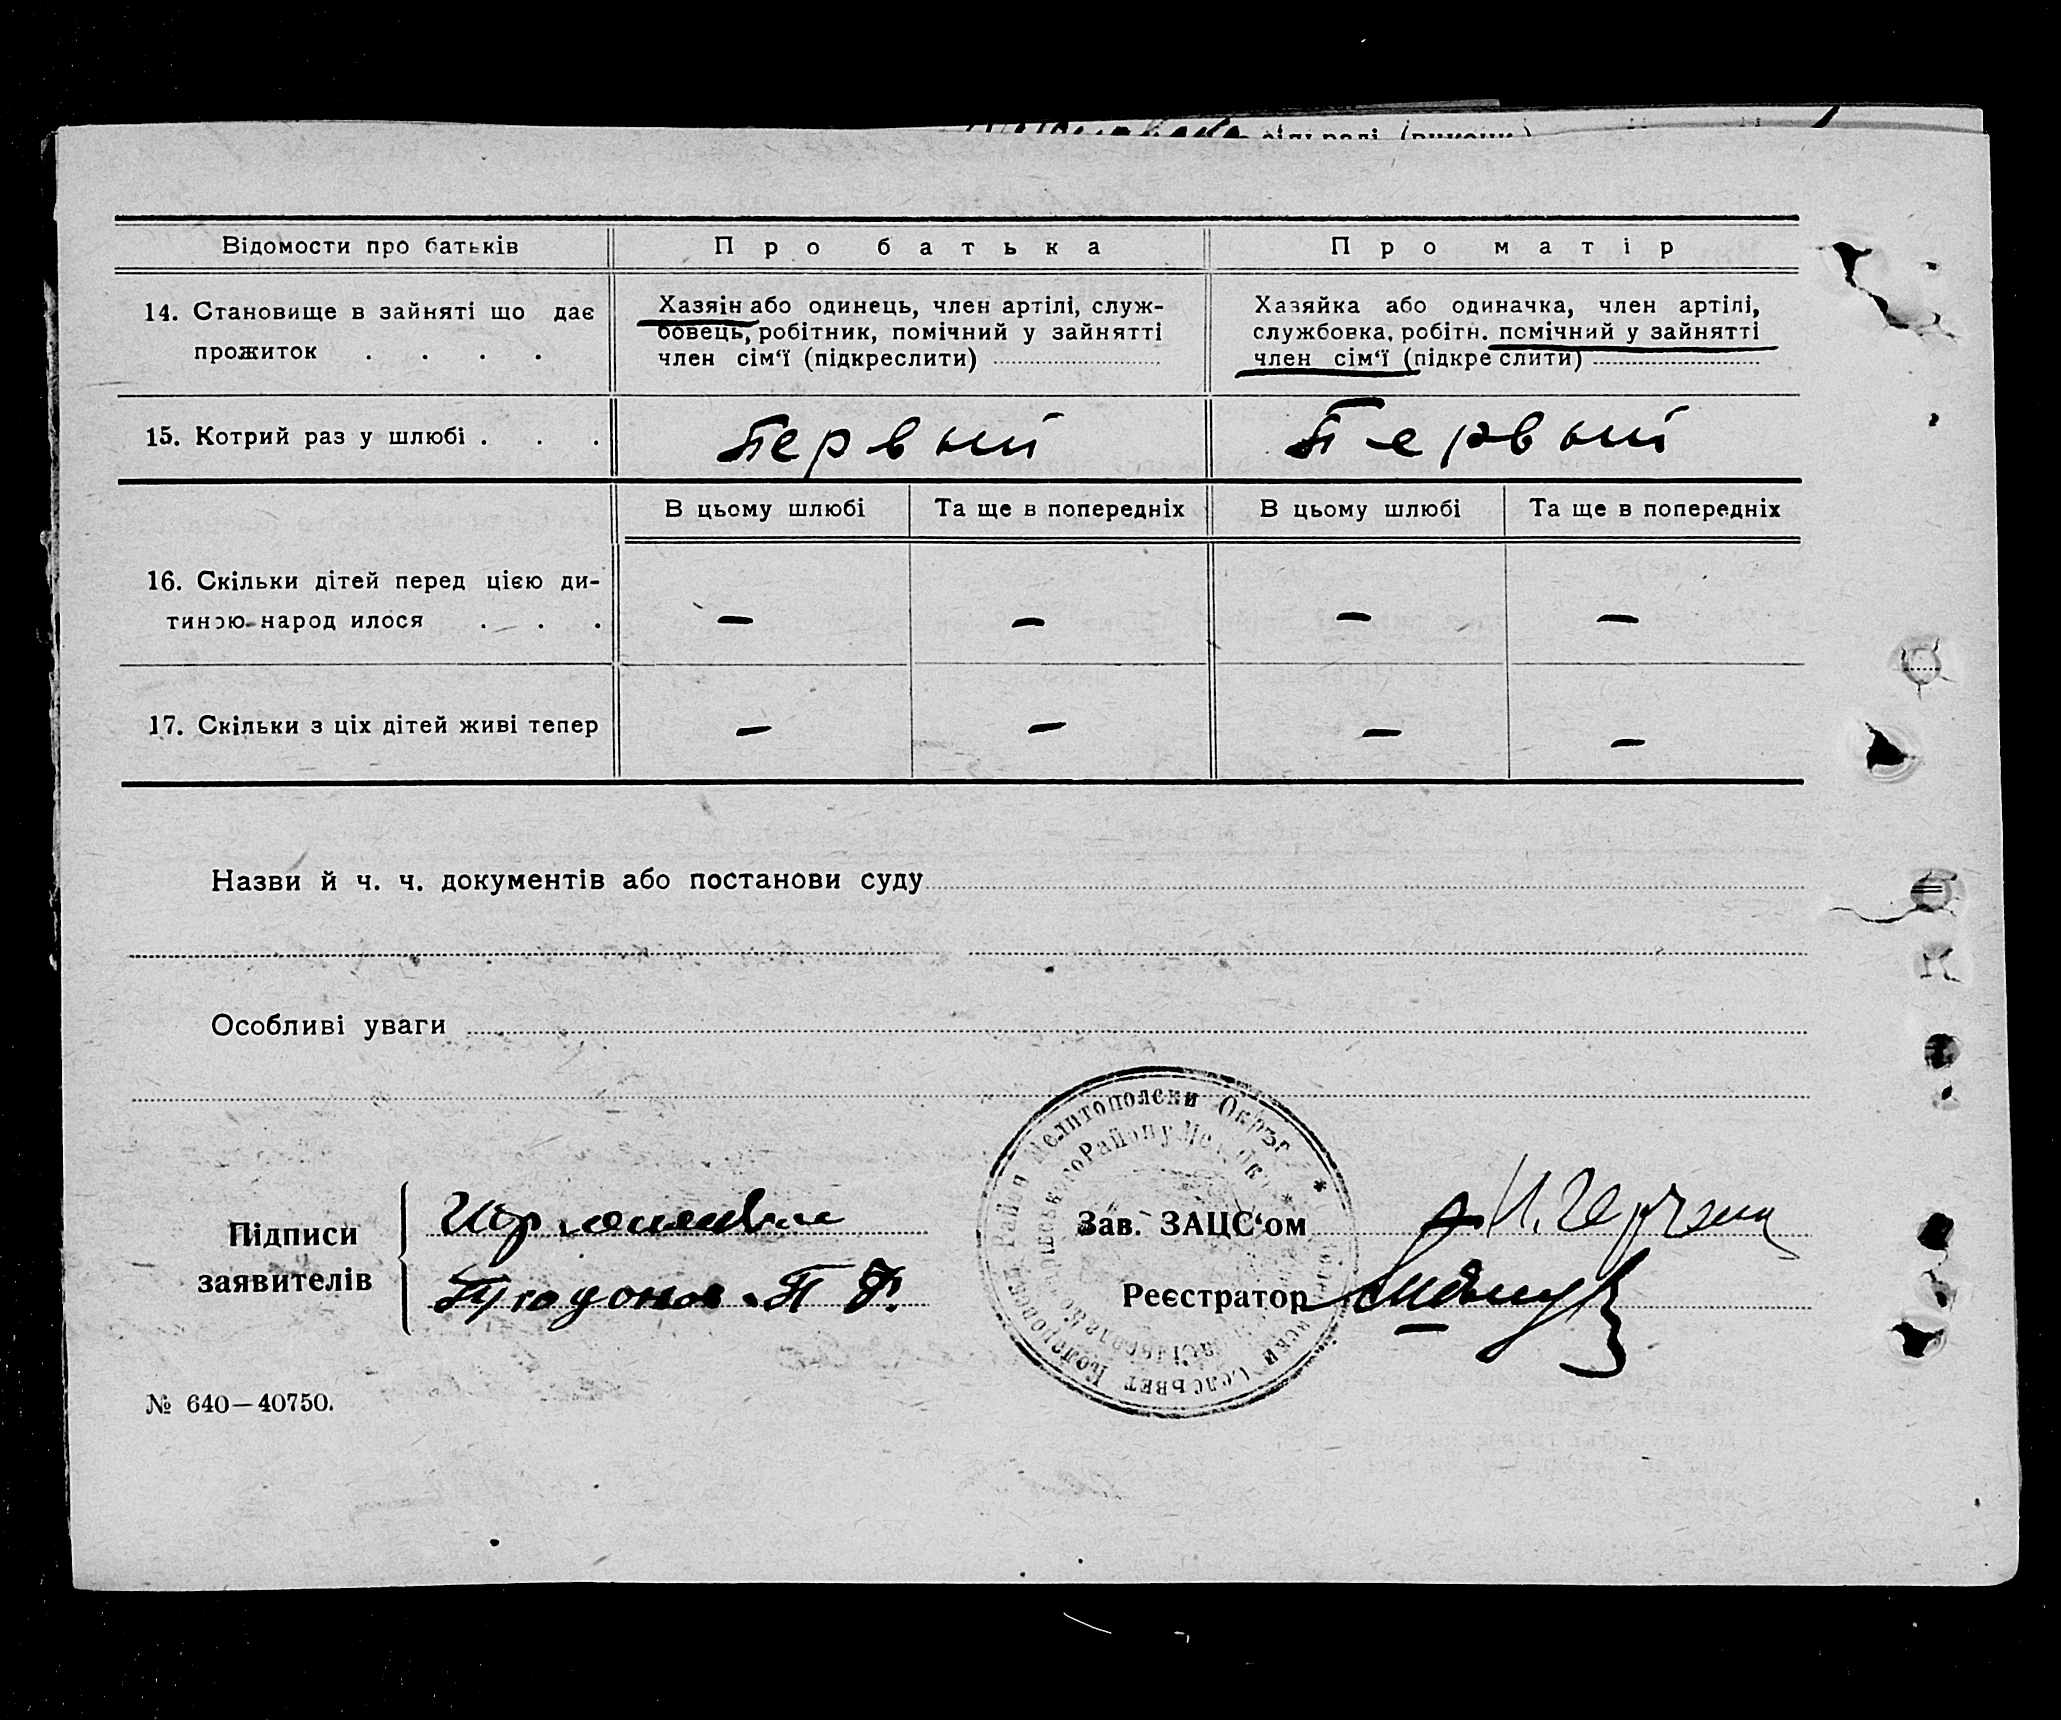 Відомости про батьків
Про батька
Про матір
14. Становище в зайняті що дає
прожиток . . . .
Хазяін або одинець, член артілі, служ-
бовець, робітник, помічний у зайнятті
член сім‘ї (підкреслити)
Хазяйка або одиначка, член артілі,
службовка, робітн. помічний у зайнятті
член сім‘ї (підкре слити)
15. Котрий раз у шлюбі . . .
Первый
Первый
В цьому шлюбі
Та ще в попередніх
В цьому шлюбі
Та ще в попередніх
16. Скільки дітей перед цією ди-
тиною народ илося . . .
— — — —
17. Скільки з ціх дітей живі тепер
— — — —
Назви й ч. ч. документів або постанови суду
Особливі уваги
Мелитополски Окръг
Району
Підписи
заявителів
П. Ф.
Зав. ЗАЦС‘ом
Реєстратор
№ 640—40750.